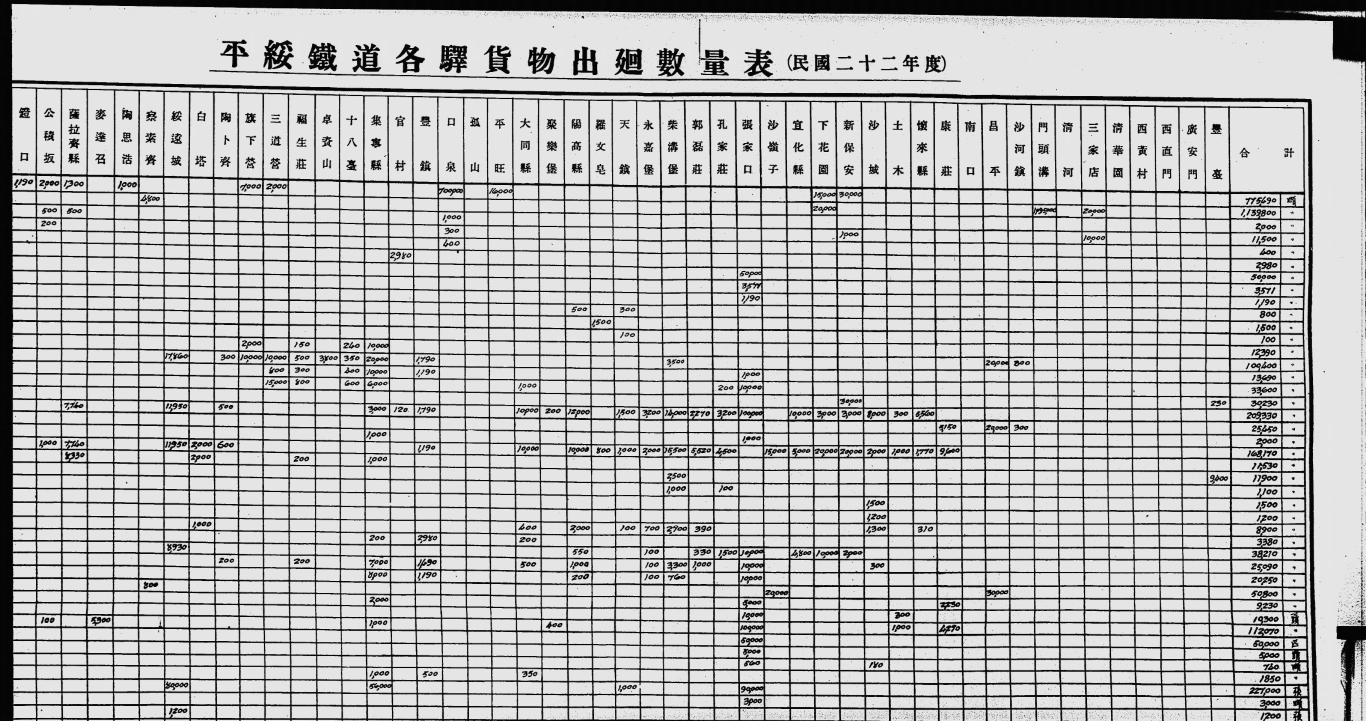 平綏鐵道各驛貨物出廻數量表(民國二十二年度)
鐙口 公積坂 薩拉齊縣 麥達召 陶思浩 察素齊 綏遠城 白塔 陶卜齊 旗下營 三道營 福生莊 卓資山 十八臺 集寧縣 官村 豐鎮 口泉 孤山 平旺 大同縣 聚樂堡 陽高縣 羅文皂 天鎮 永嘉堡 柴溝堡 郭磊莊 孔家莊 張家口 沙嶺子 宣化縣 下花園 新保安 沙城 土木 懷來縣 康莊 南口 昌平 沙河鎮 門頭溝 清河 三家店 清華園 西黃村 西直門 廣安門 豐臺 合計
1,190 2,000 1,300 1,000 7,000 2,000 700,000 16,000 15,000 30,000 775,490
4,800 20,000
500 500 1,000 20,000 1,139,800 〃
200 300 1,000 2,000 〃
400 10,000 11,500 〃
2,980 400 〃
50,000 2,980 〃
3,571 50,000 〃
1,190 3,571 〃
500 300 1,190 〃
1,500 800 〃
100 1,500 〃
2,000 150 240 10,000 100 〃
17,860 300 10,000 10,000 500 3,800 350 20,000 1,790 3,500 20,000 800 12,390 〃
800 300 400 10,000 1,190 1,000 109,400 〃
15,000 800 600 6,000 1,000 200 10,000 13,690 〃
30,000 33,600 〃
7,740 11,950 500 3,000 120 1,790 10,000 200 12,000 1,500 3,200 16,000 2,270 3,200 100,000 10,000 3,000 3,000 8,000 300 6,560 230 30,230 〃
209,330 〃
1,000 1,000 5,150 20,000 300 25,450 〃
1,000 7,740 11,950 2,000 600 1,190 10,000 10,000 800 1,000 2,000 15,500 5,520 4,500 15,000 5,000 20,000 20,000 2,000 1,000 1,770 9,600 2,000 〃
8,330 2,000 200 1,000 168,170 〃
2,500 9,400 11,530 〃
1,000 100 11,900 〃
1,500 1,100 〃
1,200 1,500 〃
1,000 400 2,000 100 700 2,700 390 1,300 310 1,200 〃
200 2,980 200 8,900 〃
8,930 550 100 330 1,500 10,000 4,800 10,000 2,000 3,380 〃
200 200 7,000 1,690 500 1,000 100 3,300 1,000 10,000 300 38,210 〃
8,000 1,190 200 100 760 10,000 25,090 〃
800 20,000 30,000 20,250 〃
2,000 5,000 2,230 50,800 〃
10,000 300 9,230 〃
100 5,300 1,000 400 100,000 1,000 4,270 10,300
50,000 112,070 〃
5,000 50,000
560 180 5,000
1,000 500 350 740
80,000 56,000 1,000 90,000 1,850 〃
3,000 227,000 張
1,200 3,000
1,200 張